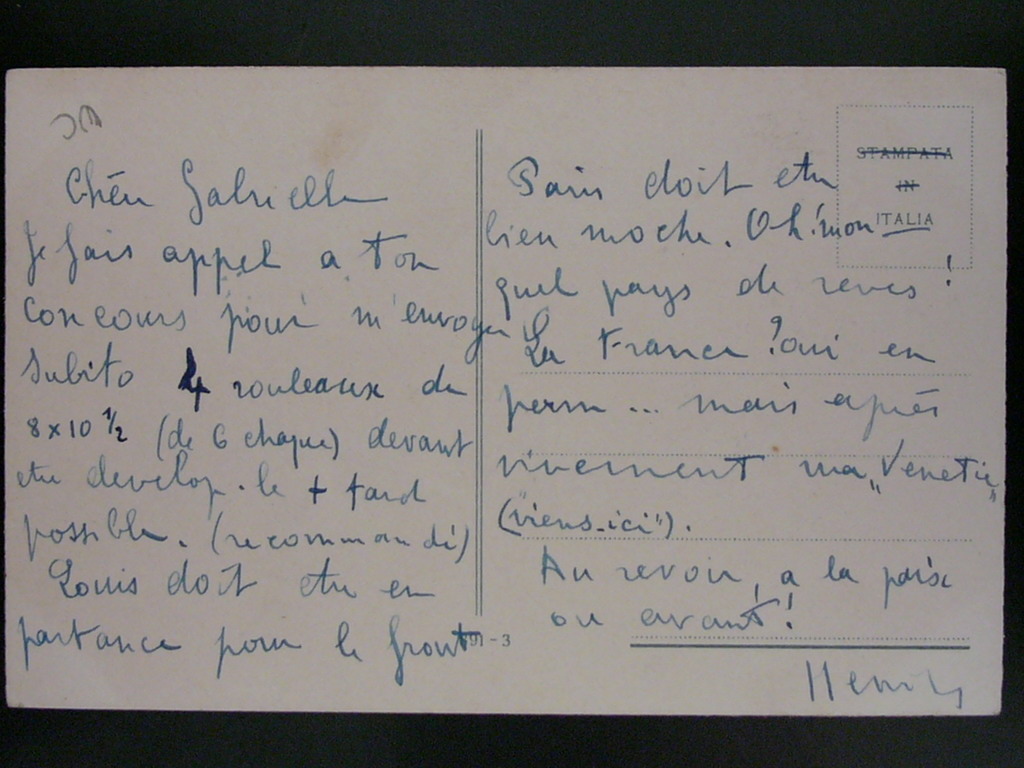 Chère Gabrielle
Je fais appel a ton
concours pour m'envoyer
subito 4 rouleaux de
8x10 1/2 (de 6 chaque) devant
etre develop. le + tard
possible. (recommandé)
Louis doit etre en
partance pour le front
Paris doit etre
bien moche. Oh! mon
quel pays de reves!
La France? oui en
perm... mais après
vivement ma „Venetie"
("viens-ici").
Au revoir, a la paix
ou avant!
Henry
STAMPATA
IN
ITALIA
- 3